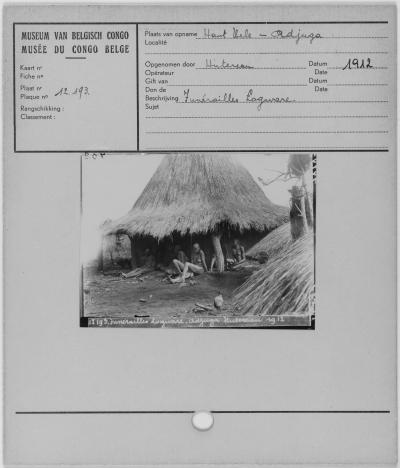 MUSEUM VAN BELGISCH CONGO
MUSÉE DU CONGO BELGE
Kaart nr
Fiche no
Plaat nr
Plaque no 12.193.
Rangschikking :
Classement :
Plaats van opname Haut Uele - Adjuga
Localité
Opgenomen door Hutereau Datum 1912
Opérateur Date
Gift van Datum
Don de Date
Beschrijving Funérailles Logware.
Sujet
12193. Funérailles Logware. Adjuga Hutereau 1912